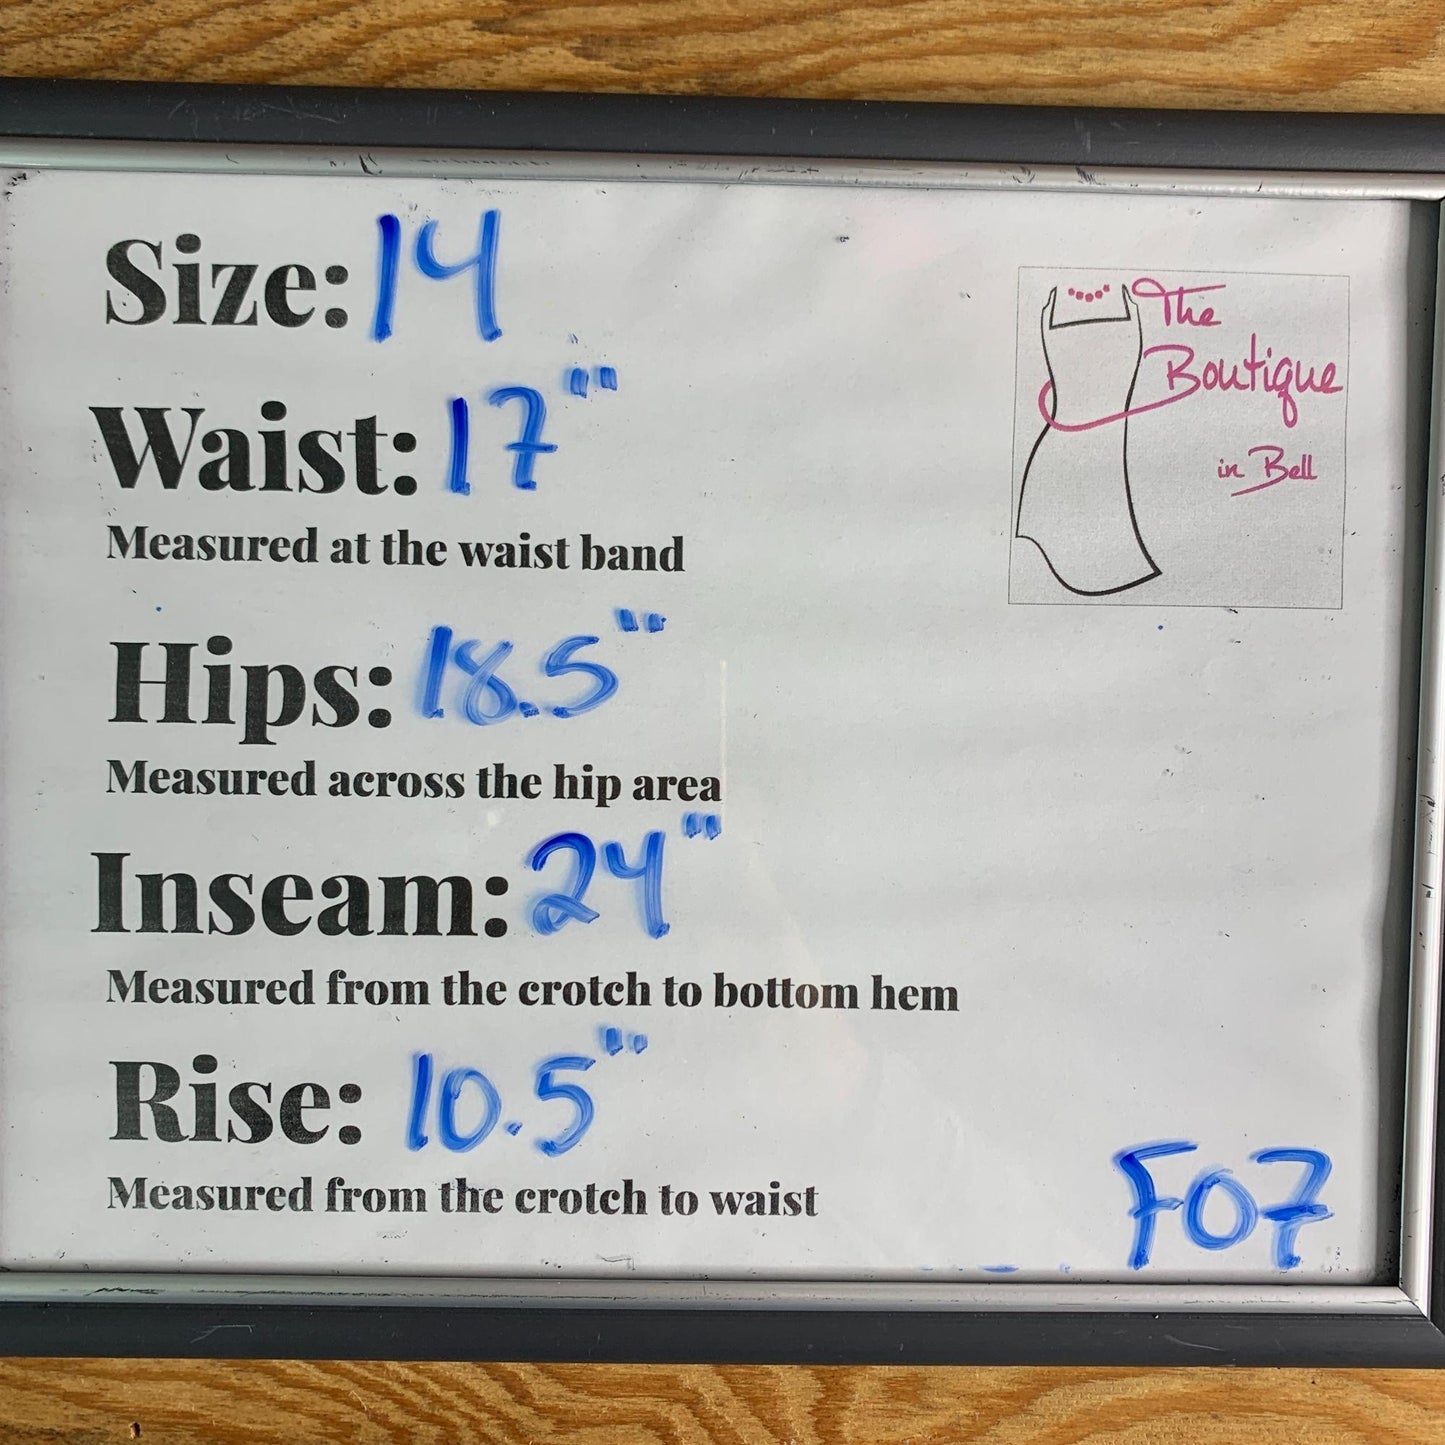 Size: 14
Waist: 17"
Measured at the waist band
Hips: 18.5"
Measured across the hip area
Inseam: 24"
Measured from the crotch to bottom hem
Rise: 10.5"
Measured from the crotch to waist
The
Boutique
in Bell
F07